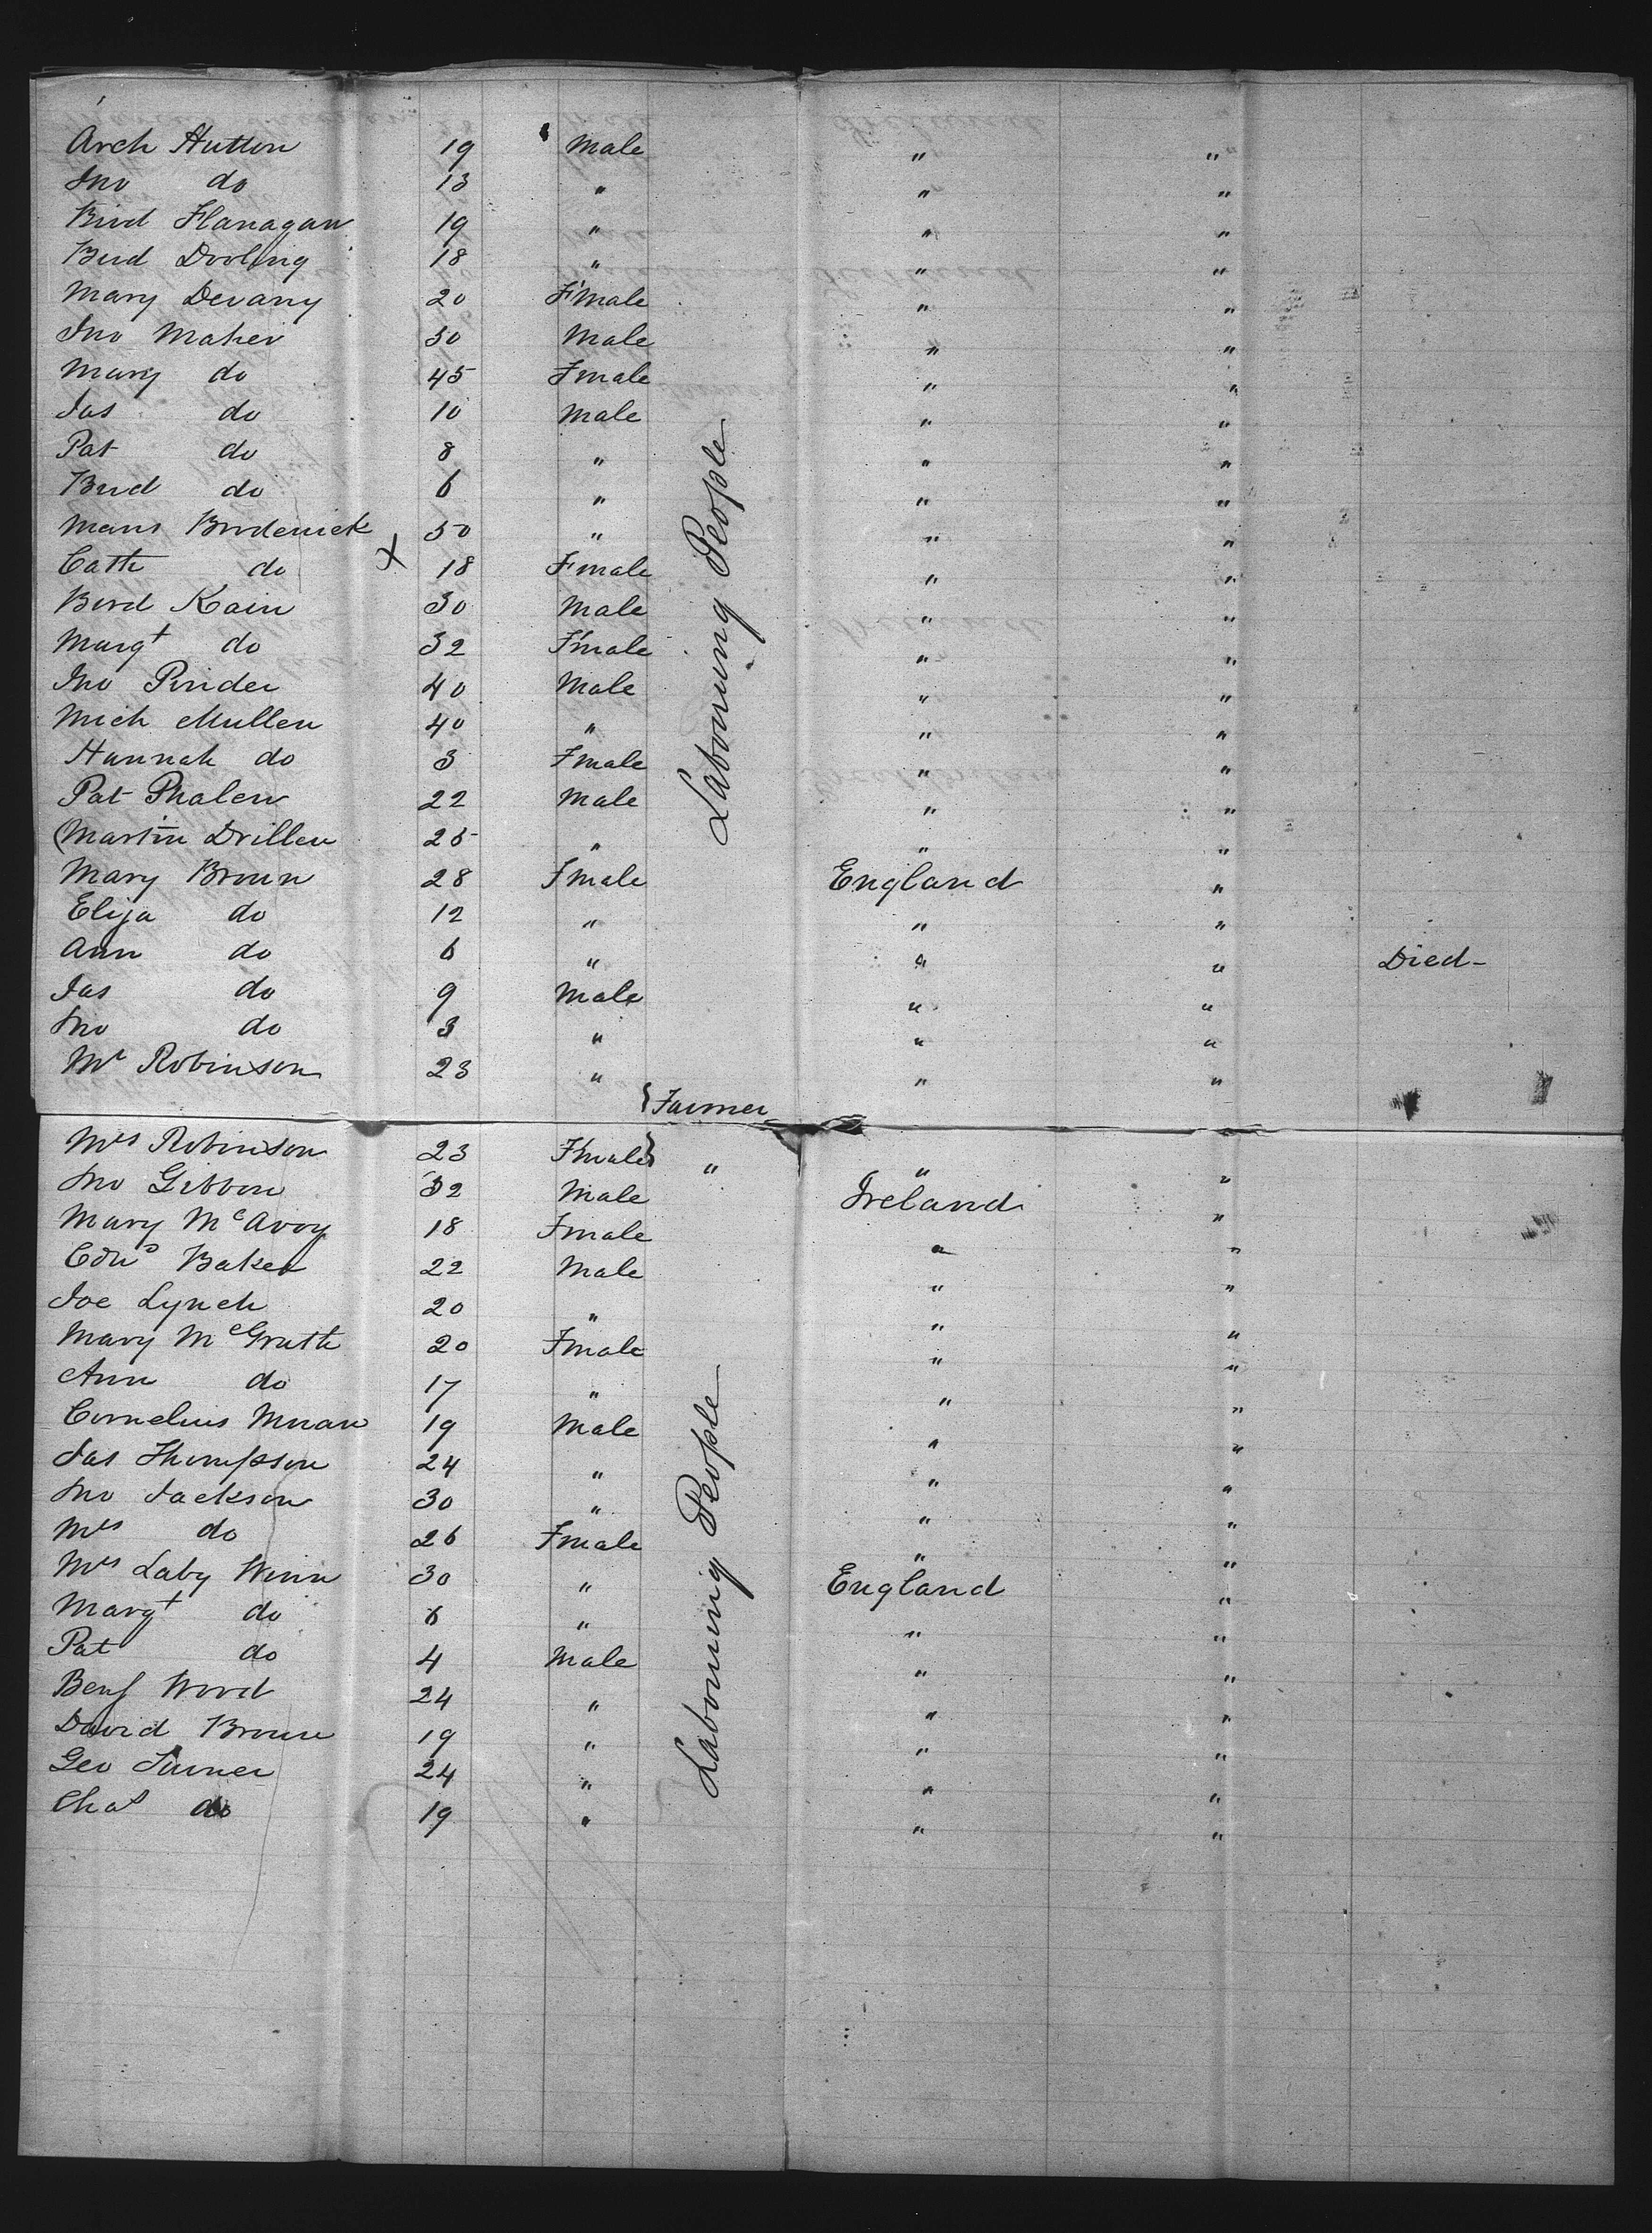 Arch Hutton 19 Male " "
Jno do 13 " " "
Bird Flanagan 19 " " "
Bird Dooling 18 " " "
Mary Devany 20 F'male " "
Jno Maher 50 Male " "
Mary do 45 Fmale " "
Jas do 10 Male " "
Pat do 8 " " "
Bird do 6 " " "
Mans Broderick 50 " " "
Cath do X 18 Fmale " "
Bird Kain 30 Male " "
Margt do 32 F'male " "
Jno Pinder 40 Male " "
Mich Mullen 40 " " "
Hannah do 3 Fmale " "
Pat Phalen 22 Male " "
(Martin Drillen 25 " " "
Labouring People
Mary Broun 28 Fmale England "
Eliza do 12 " " "
Ann do 6 " " " Died-
Jas do 9 Male " "
Jno do 3 " " "
Mr Robinson 23 " " "
{Farmer
Mrs Robinson 23 Fmale} " " "
Jno Gibbon 32 Male Ireland "
Mary McAvoy 18 Fmale " "
Edwd Baker 22 Male " "
Joe Lynch 20 " " "
Mary McGrath 20 Fmale " "
Ann do 17 " " "
Cornelius Moran 19 Male " "
Jas Thompson 24 " " "
Jno Jackson 30 " " "
Mrs do 26 Fmale " "
Mrs Laby Winn 30 " England "
Margt do 6 " " "
Pat do 4 Male " "
Benj Wood 24 " " "
David Broun 19 " " "
Geo Turner 24 " " "
Chas do 19 " " "
Labouring People